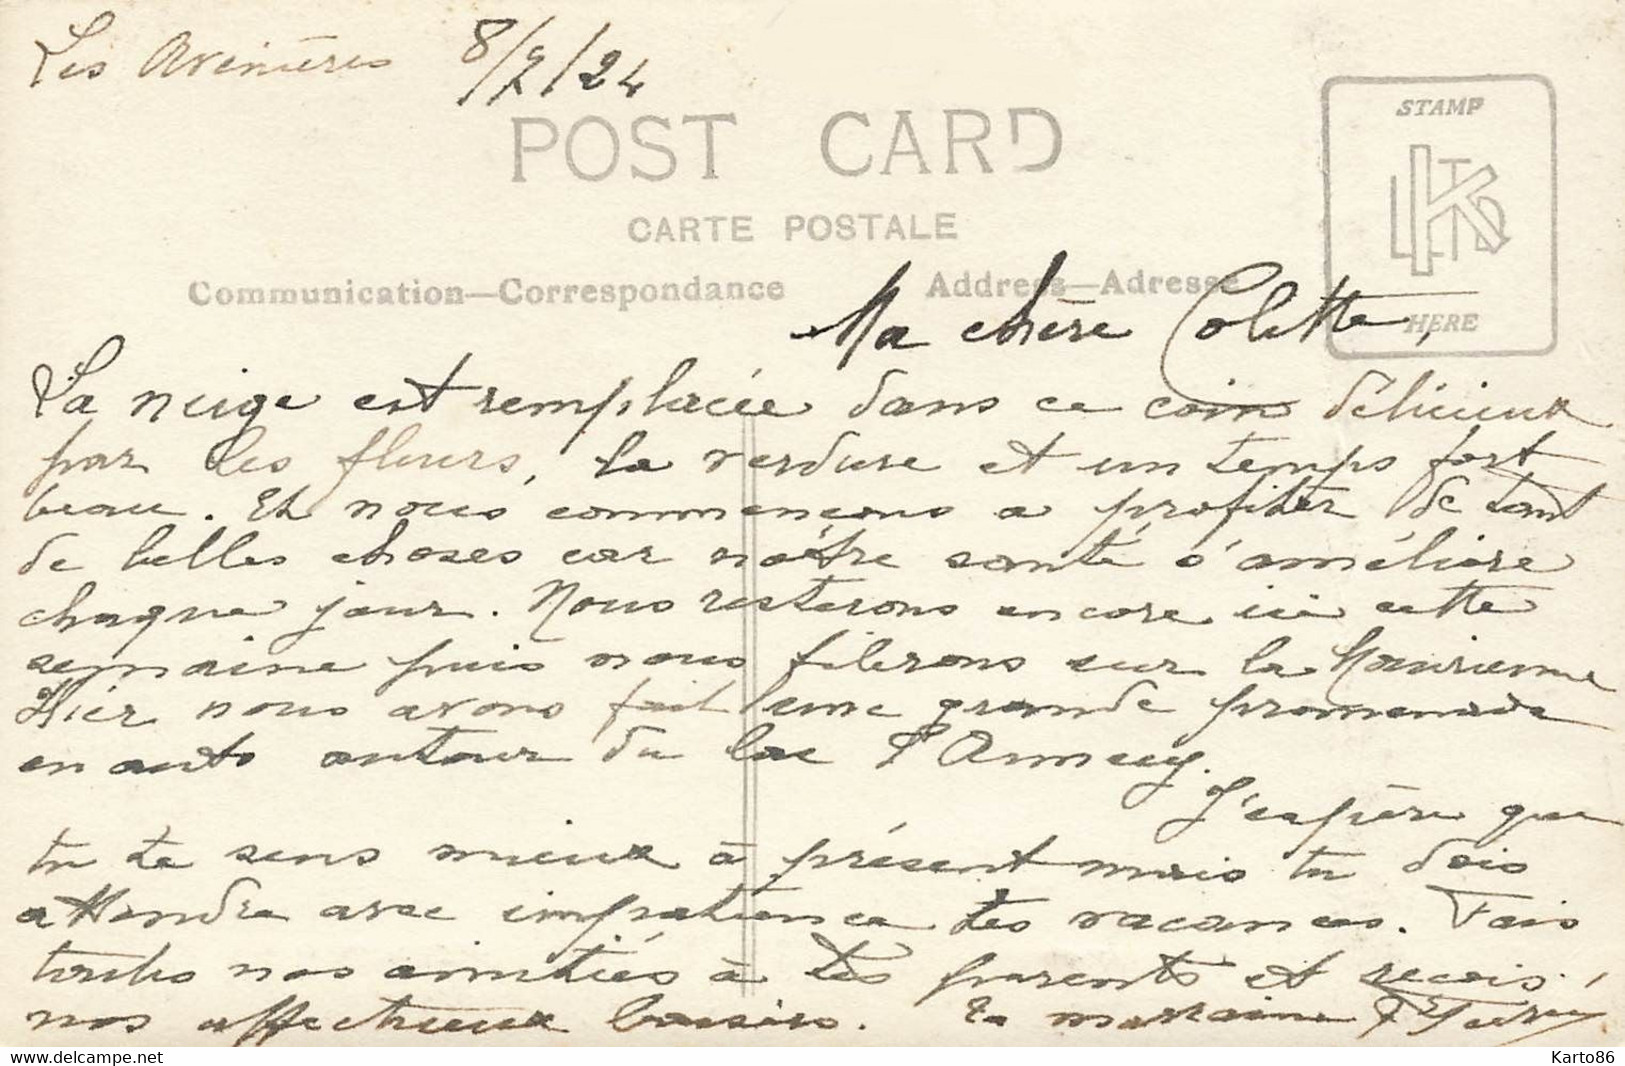 Les Avenières 8/7/24
POST CARD
CARTE POSTALE
STAMP
HERE
Communication—Correspondance
Address—Adresse
Ma chère Colette,
La neige est remplacée dans ce coin délicieux
par les fleurs, la verdure et un temps fort
beau. Et nous commençons a profiter de tant
de belles choses car notre santé s'améliore
chaque jour. Nous resterons encore ici cette
semaine puis nous filerons sur la Maurienne
Hier nous avons fait une grande promenade
en auto autour du lac d'Annecy.
J'espère que
tu te sens mieux à présent mais tu dois
attendre avec impatience tes vacances. Fais
toutes nos amitiés à tes parents et reçois
nos affectueux baisers. Ta marraine
delcampe.net
Karto86